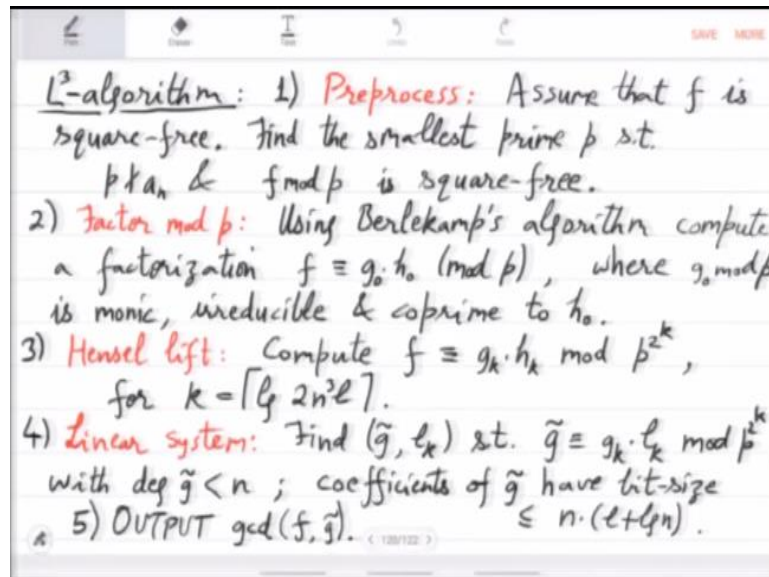 SAVE MORE
L³-algorithm: 1) Preprocess: Assume that f is
square-free. Find the smallest prime p s.t.
p∤aₙ & f mod p is square-free.
2) Factor mod p: Using Berlekamp's algorithm compute
a factorization f ≡ g₀·h₀ (mod p), where g₀ mod p
is monic, irreducible & coprime to h₀.
3) Hensel lift: Compute f ≡ gₖ·hₖ mod p^{2^k},
for k = ⌈lg 2n³ℓ⌉.
4) Linear system: Find (g̃, ℓₖ) s.t. g̃ ≡ gₖ·ℓₖ mod p^{2^k}
with deg g̃ < n ; coefficients of g̃ have bit-size
≤ n·(ℓ+lg n).
5) OUTPUT gcd(f, g̃).